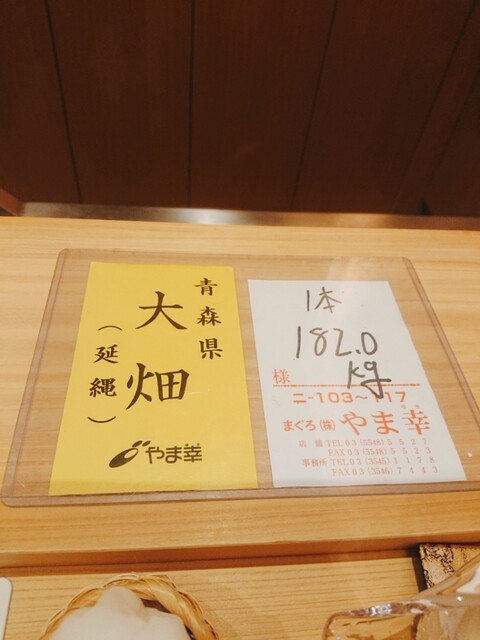 青森県
大畑
（延縄）
やま幸
1本
182.0
kg
様
ニ-103～117
まぐろ(株)やま幸
店舗 TEL 03 (5548) 5527
FAX 03 (5548) 5523
事務所 TEL 03 (3545) 1178
FAX 03 (3546) 7443